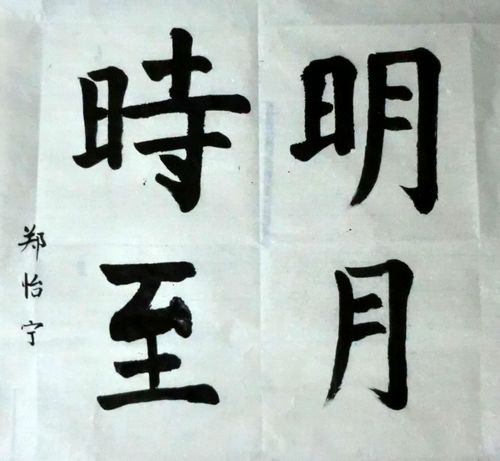 明月
時至
郑怡宁